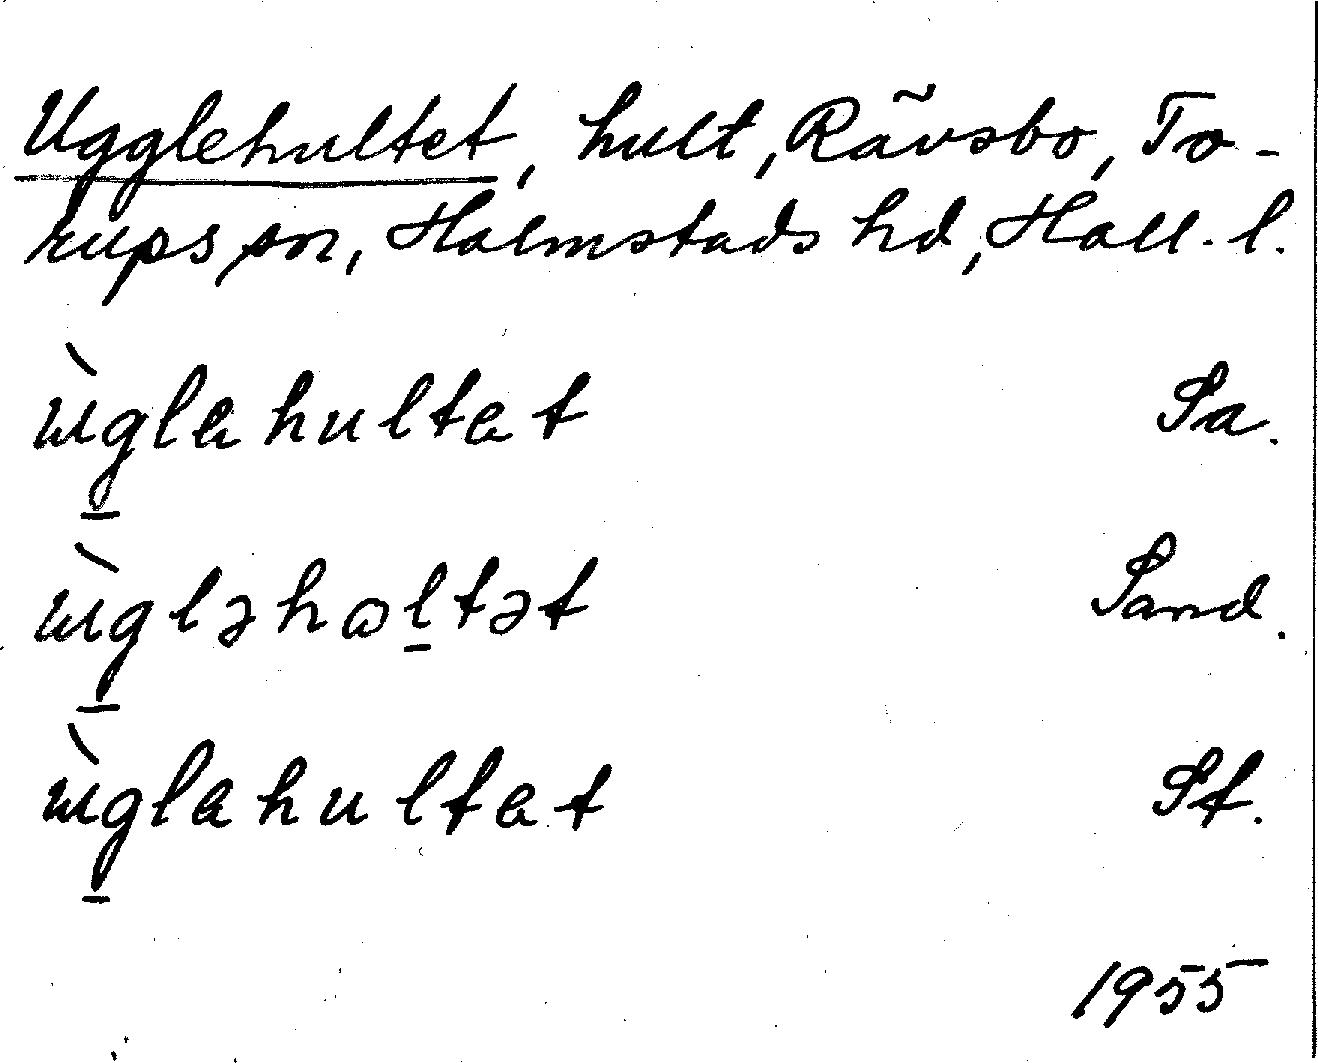 Ugglehultet, hult, Rävsbo, To-
rups sn, Halmstads hd, Hall. l.
ùg̲lahultat Sa.
ùg̲ləhɷl̲tət Sand.
ùg̲lahultat St.
1955